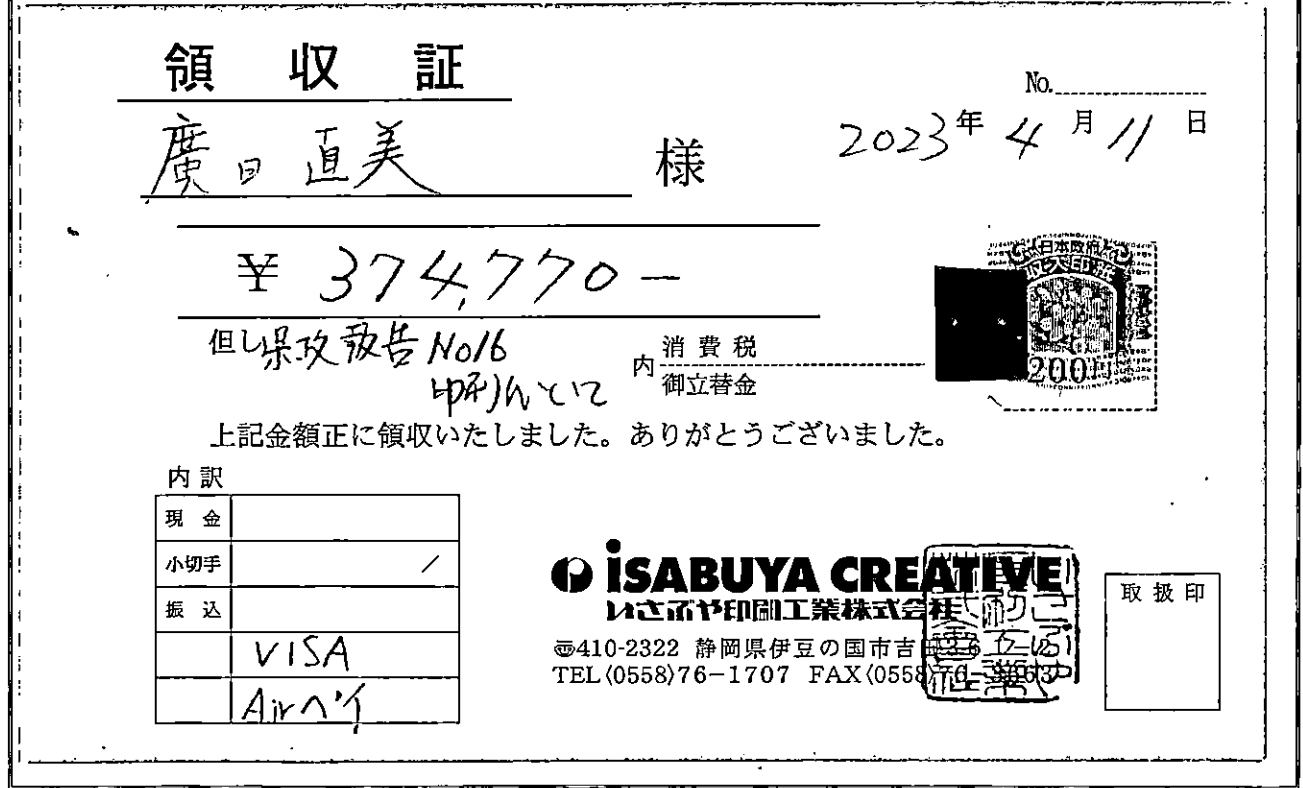 領収証
No.
2023年 4月 11日
廣田直美 様
¥ 374,770-
但し県政報告 No16
印刷代として
内 消費税
御立替金
日本政府
収入印紙
200円
上記金額正に領収いたしました。ありがとうございました。
内訳
現金
小切手
振込
VISA
Airペイ
iSABUYA CREATIVE
いさぶや印刷工業株式会社
〒410-2322 静岡県伊豆の国市吉田
TEL(0558)76-1707 FAX(0558)76-
取扱印